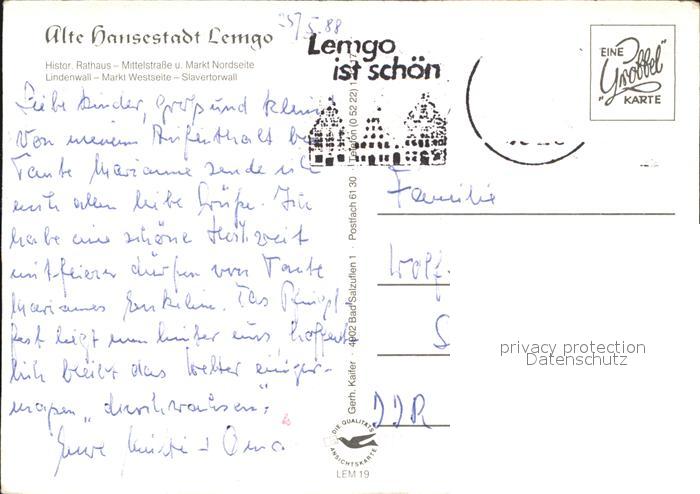 Alte Hansestadt Lemgo
Histor. Rathaus – Mittelstraße u. Markt Nordseite
Lindenwall – Markt Westseite – Slavertorwall
25/5.88
Lemgo
ist schön
EINE
"Größel"
KARTE
Liebe Kinder, groß und klein
Von meinem Aufenthalt bei
Tante Marianne sende ich
euch allen liebe Grüße. Ich
habe eine schöne Hochzeit
mitfeiern dürfen von Tante
Mariannes Enkelin. Das Pfingst
fest liegt nun hinter uns, hoffent
lich bleibt das Wetter einiger-
maßen "durchwachsen".
Eure Mutti + Oma
Familie
Wolf.
S
DDR
Gerh. Kaifer · 4902 Bad Salzuflen 1 · Postfach 61 30 · Telefon (0 52 22) 1
DIE QUALITÄTS
ANSICHTSKARTE
LEM 19
privacy protection
Datenschutz